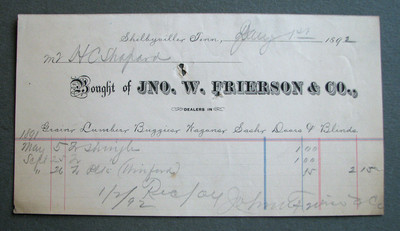 Shelbyville Tenn., Jany 1st 1892
Mr H C Shepard
Bought of JNO. W. FRIERSON & CO.,
DEALERS IN
Grain Lumber Buggies Wagons Sash Doors & Blinds
1891
May 5 To Shingle 1 00
Sept 25 To 1 00
" 26 To 15 2 15
1/2/92 Rec pay John W Frierson & Co